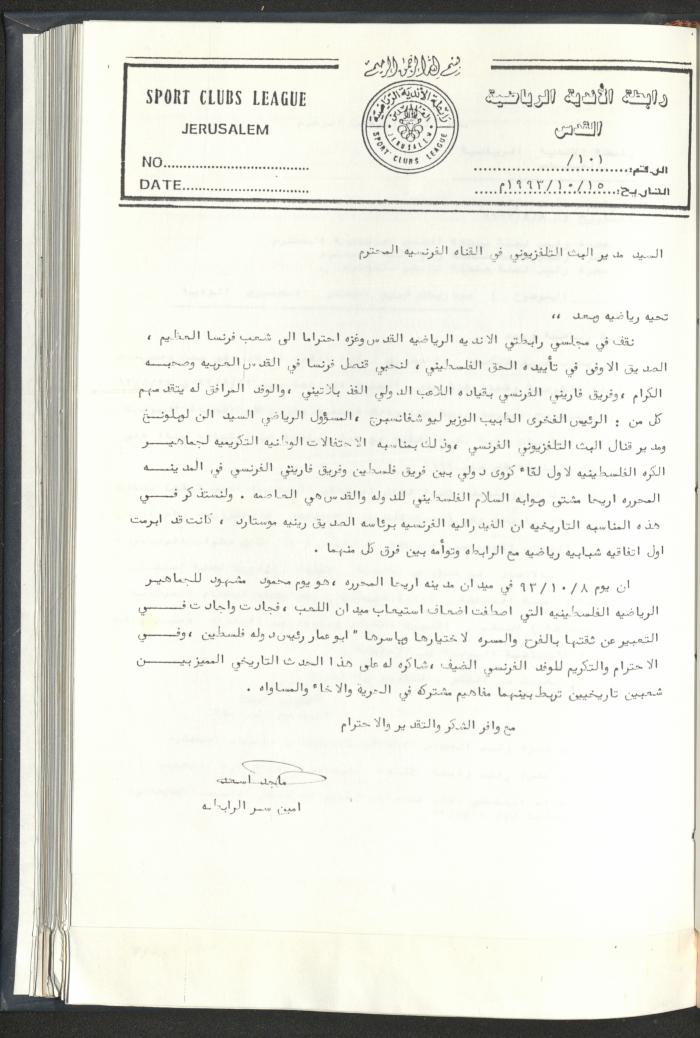 بسم الله الرحمن الرحيم
SPORT CLUBS LEAGUE
JERUSALEM
NO.
DATE
رابطة الأندية الرياضية
القدس
SPORT CLUBS LEAGUE
JERUSALEM
رابطة الأندية الرياضية
القدس
الرقم: ١٠١/
التاريخ: ١٩٩٣/١٠/١٥م
السيد مدير البث التلفزيوني في القناه الفرنسيه المحترم
تحيه رياضيه وبعد ،،
نقف في مجلسي رابطتي الانديه الرياضيه القدس وغزه احتراما الى شعب فرنسا العظيم ،
الصديق الاوفى في تأييده الحق الفلسطيني ، لنحيي قنصل فرنسا في القدس العربيه وصحبه
الكرام ، وفريق فاريني الفرنسي بقياده اللاعب الدولي الفذ بلاتيني ، والوفد المرافق له يتقدمهم
كل من : الرئيس الفخرى الطبيب الوزير ليو شفانسبرج ، المسؤول الرياضي السيد الن لوبلونـخ
ومدير قنال البث التلفزيوني الفرنسي ، وذلك بمناسبه الاحتفالات الوطنيه التكريميه لجماهيـر
الكره الفلسطينيه لاول لقاء كروى دولي بين فريق فلسطين وفريق فاريني الفرنسي في المدينـه
المحرره اريحا مشتى وبوابه السلام الفلسطيني للدوله والقدس هي العاصمه . ولنستذكر فـي
هذه المناسبه التاريخيه ان الفيدراليه الفرنسيه برئاسه الصديق رينيه موستارد ، كانت قد ابرمت
اول اتفاقيه شبابيه رياضيه مع الرابطه وتوأمه بين فرق كل منهما .
ان يوم ٩٣/١٠/٨ في ميدان مدينه اريحا المحرره ، هو يوم محمود مشهود للجماهير
الرياضيه الفلسطينيه التي اصطفت اضعاف استيعاب ميدان اللعب ، فجادت واجادت فـي
التعبير عن ثقتها بالفرح والمسره لاختيارها وياسرها " ابو عمار رئيس دوله فلسطين ، وفـي
الاحترام والتكريم للوفد الفرنسي الضيف ، شاكره له على هذا الحدث التاريخي المميز بيـن
شعبين تاريخيين تربط بينهما مفاهيم مشتركه في الحرية والاخاء والمساواه .
مع وافر الشكر والتقدير والاحترام
ماجد اسعد
امين سر الرابطه